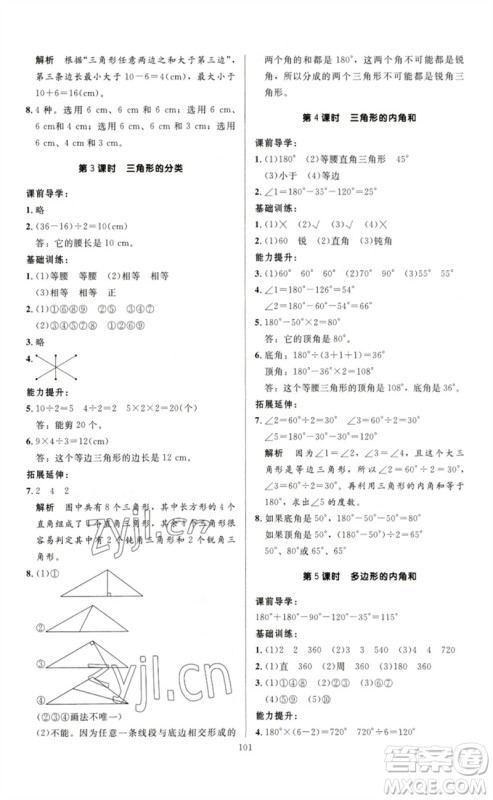 解析 根据“三角形任意两边之和大于第三边”,
第三条边最小大于 10-6=4(cm),小于 10+
6=16(cm)。
8. 4 种。选用 6 cm、6 cm、6 cm,选用 6 cm、6
cm、
第 3 课时 三角形的分类
课前导学:
1. 略
2. (36-16)÷2=10(cm)
答:它的腰长是 10 cm。
基础训练:
1. (1)等腰 等腰 等边
(2)相等 相等 正
2. (1)①⑥⑧⑨ ②⑤ ③④⑦
(2)②③④⑤⑥⑦
3. 略
4.
能力提升:
5. 10÷2=5 4÷2=2 5×2×2=20(个)
答:能剪 20 个。
6. 9×4÷3=12(cm)
答:这个等边三角形的边长是 12 cm。
拓展延伸:
7. 2 4 2
解析 图中共有 8 个三角形,其中长方形的 4 个
直角组成了 4 个直角三角形,其余的三角形很
容易判定其中有 2 个钝角三角形和 2 个锐角三
角形。
8. (1)①
②
③
④
(②③④画法不唯一)
(2)不能。因为任意一条线段与底边相交形成的
两个角的和都是 180°,这两个角不可能都是锐
角,所以分成的两个三角形不可能都是锐角三
角形。
第 4 课时 三角形的内角和
课前导学:
1. (1)180° (2)等腰直角三角形 45°
(3)小于 (4)等边
2. ∠2=180°-35°-90°=55°
基础训练:
3. (1)× (2)√ (3)√ (4)×
4. (1)60 锐 (2)直角 (3)钝角
能力提升:
3. (1)60° 60° (2)60° 90° (3)50° 50°
4. ∠1=180°-126°=54°
∠2=180°-80°-54°=46°
5. 180°-50°×2=80°
答:它的顶角是 80°。
6. 底角:180°÷(3+1+1)=36°
顶角:180°-36°×2=108°
答:这个三角形的顶角是 108°。
拓展延伸:
7. ∠2=60°÷2=30° ∠3=60°÷2=30°
∠5=180°-30°-30°=120°
解析 因为∠1=∠2,∠3=∠4,又因为此大三
角形是等边三角形,每个角都是 60°,所以∠1=
∠2=∠3=∠4=60°÷2=30°。再根据三角形的
内角和求出∠5 的度数。
8. 如果底角是 50°,顶角是 180°-50°×2=80°。
如果顶角是 50°,底角是(180°-50°)÷2=65°。
第 5 课时 多边形的内角和
课前导学:
180°+180°-90°-120°-35°=115°
基础训练:
1. (1)2 2 360 (2)1 3 540
2. (1)直 360 (2)周 360 (3)360
3. (1)①④⑧ (2)②③⑥⑦
(4)⑤⑨ ⑩
能力提升:
4. 180°×5=900° 720°÷2=360° 720°÷6=120°
101
zyjl.cn
zyjl.cn
答案圈